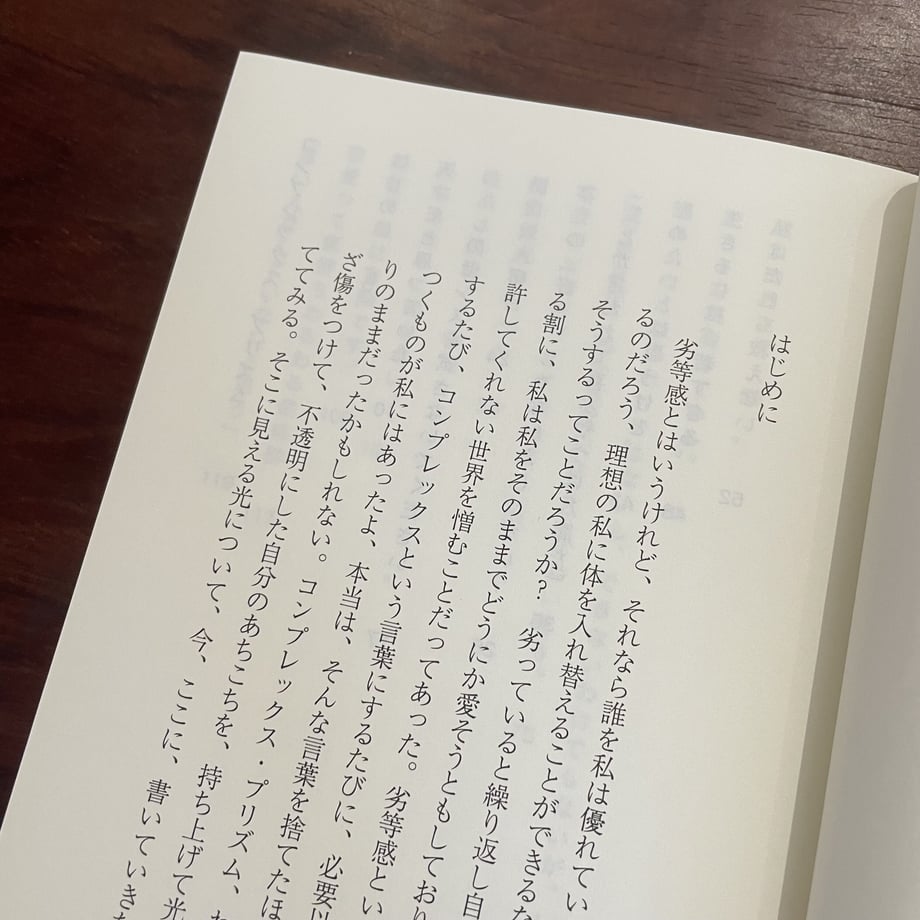 はじめに
劣等感とはいうけれど、それなら誰を私は優れてい
るのだろう、理想の私に体を入れ替えることができるな
そうするってことだろうか？　劣っていると繰り返し自
る割に、私は私をそのままでどうにか愛そうともしており
許してくれない世界を憎むことだってあった。劣等感とい
するたび、コンプレックスという言葉にするたびに、必要以
つくものが私にはあったよ、本当は、そんな言葉を捨てたほ
りのままだったかもしれない。コンプレックス・プリズム、わ
ざ傷をつけて、不透明にした自分のあちこちを、持ち上げて光
ててみる。そこに見える光について、今、ここに、書いていきた